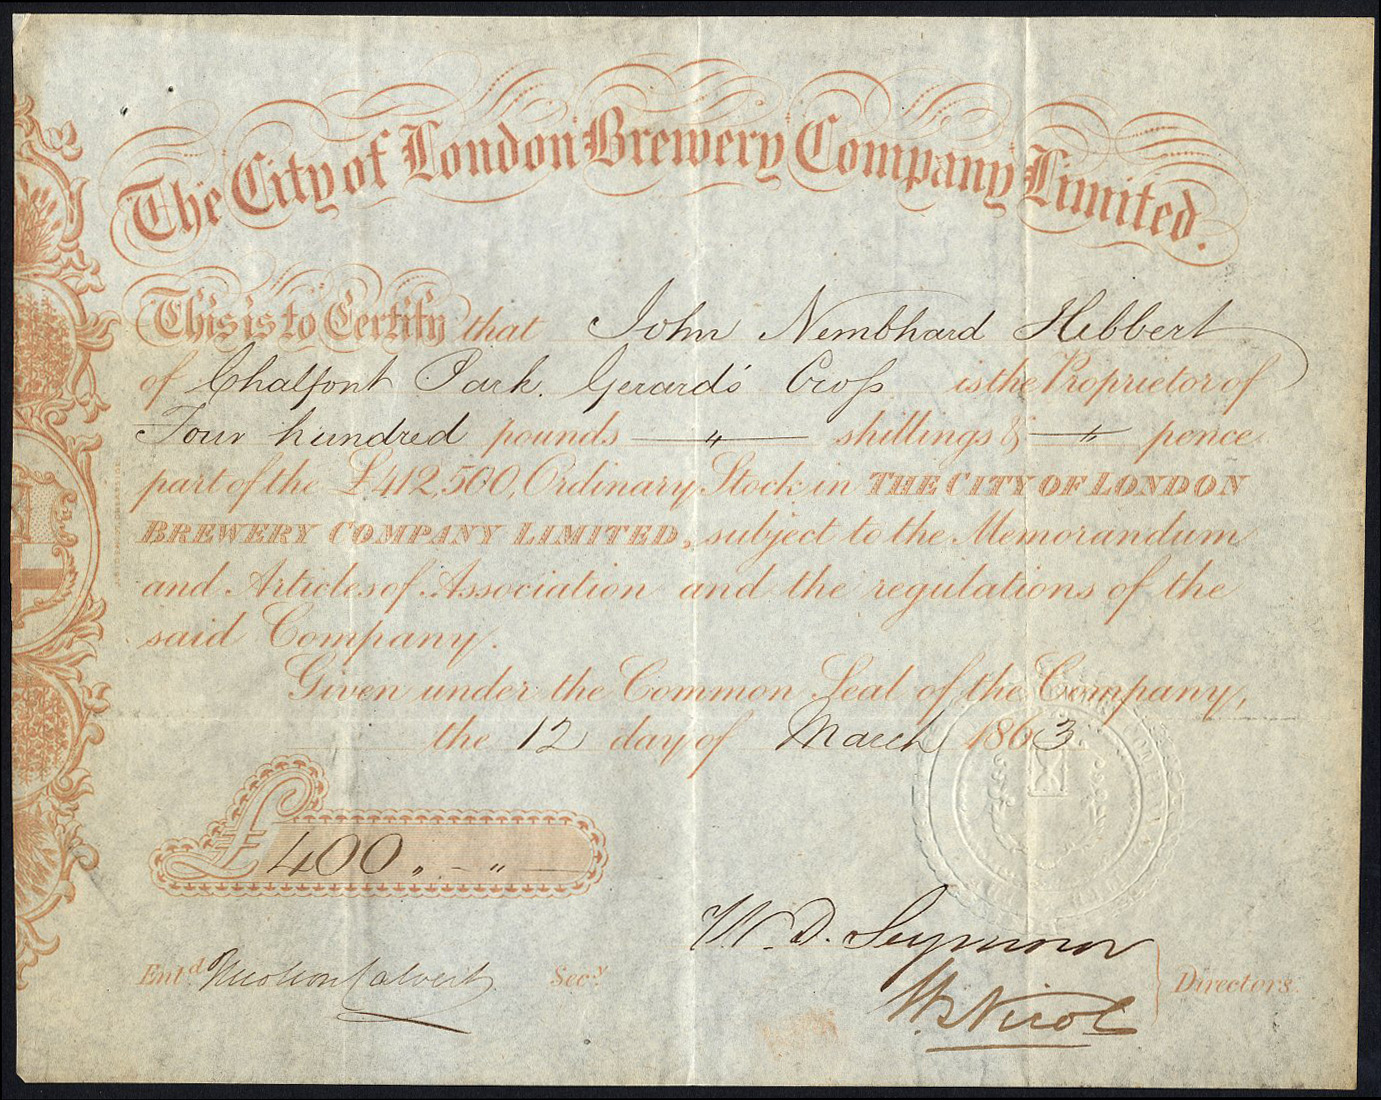 The City of London Brewery Company Limited.
This is to Certify that John Nembhard Hibbert
of Chalfont Park. Gerard's Cross is the Proprietor of
Four hundred pounds — " — shillings & — " — pence
part of the £412,500, Ordinary Stock in THE CITY OF LONDON
BREWERY COMPANY LIMITED, subject to the Memorandum
and Articles of Association and the regulations of the
said Company.
Given under the Common Seal of the Company,
the 12 day of March 1863
£400 " — " —
W. D. Seymour
Entd. Calvert Secy.
Directors.
W Nicol